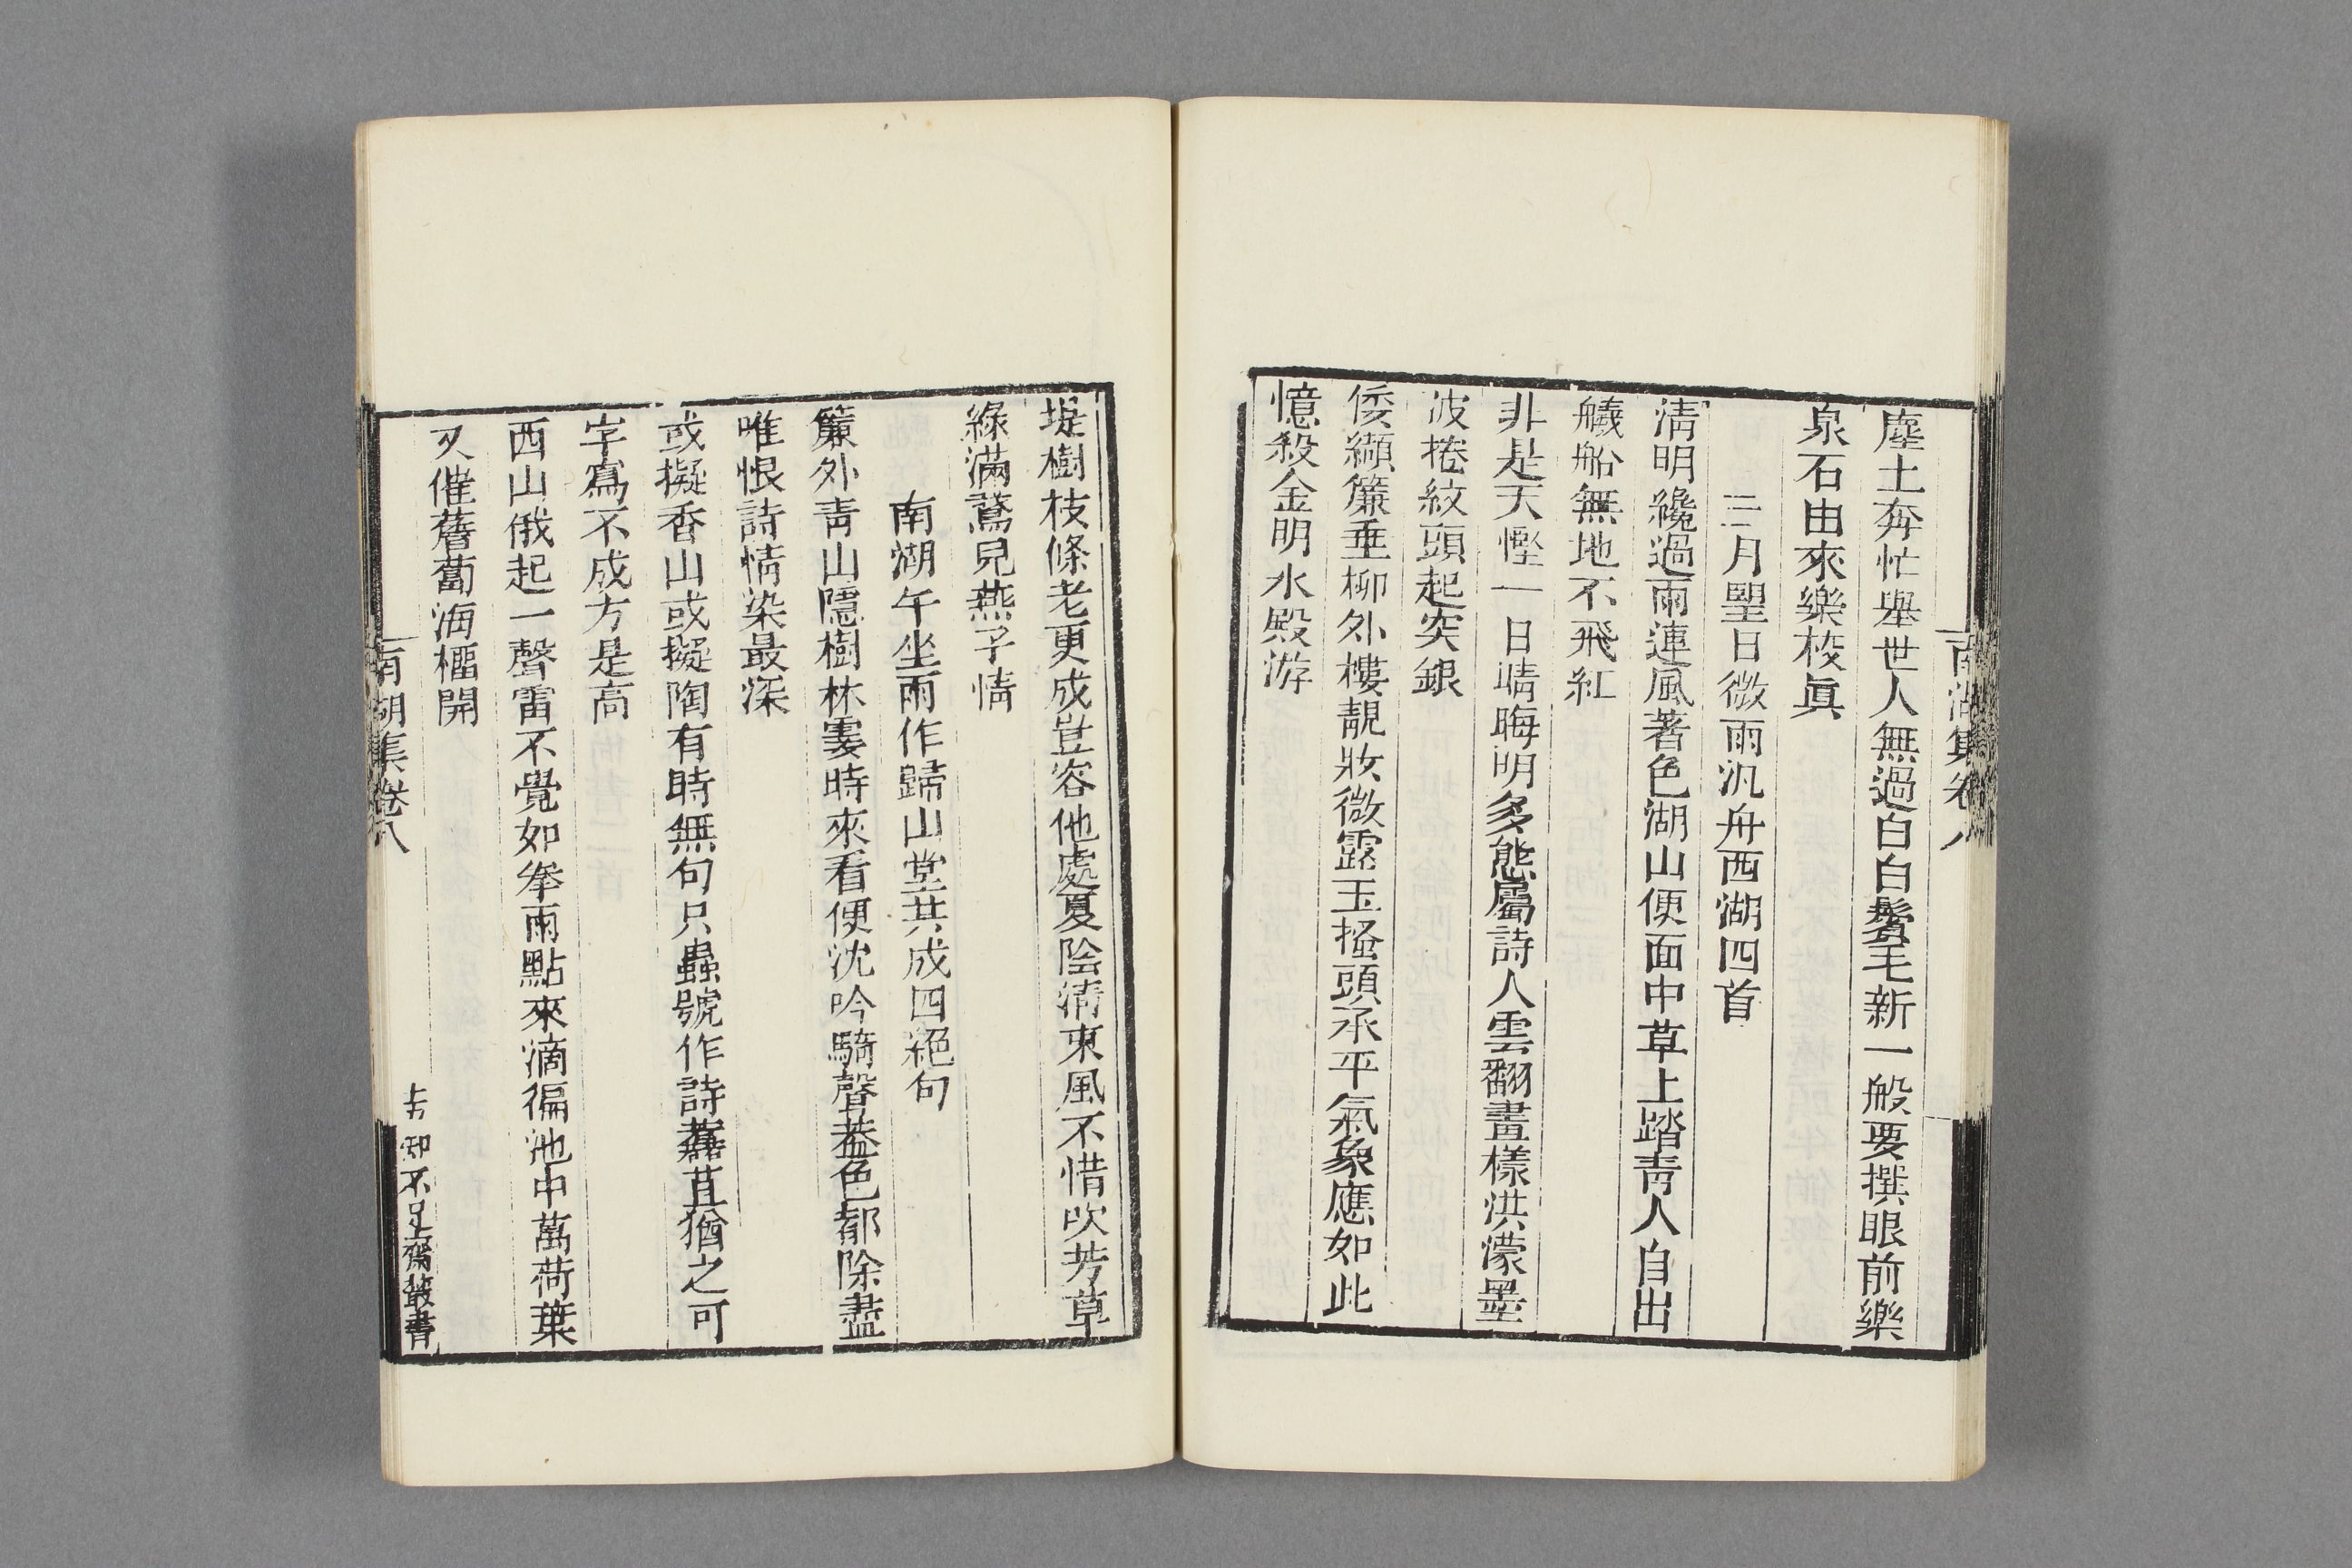 南湖集卷八
塵土奔忙舉世人無過白白鬢毛新一般要撰眼前樂
泉石由來樂校眞
三月朢日微雨汎舟西湖四首
淸明纔過雨連風著色湖山便面中草上踏靑人自出
艤船無地不飛紅
非是天慳一日晴晦明多態屬詩人雲翻畫樣洪濛墨
波捲紋頭起突銀
倭纈簾垂柳外樓靚妝微露玉搔頭承平氣象應如此
憶殺金明水殿游
堤樹枝條老更成豈容他處夏陰淸東風不惜吹芳草
綠滿鵞兒燕子情
南湖午坐雨作歸山堂共成四絕句
簾外靑山隱樹林霎時來看便沈吟騎聲葢色都除盡
唯恨詩情染最深
或擬香山或擬陶有時無句只蟲號作詩麤苴猶之可
字寫不成方是高
西山俄起一聲雷不覺如拳雨點來滴徧池中萬荷葉
又催薝蔔海榴開
南湖集卷八
知不足齋叢書